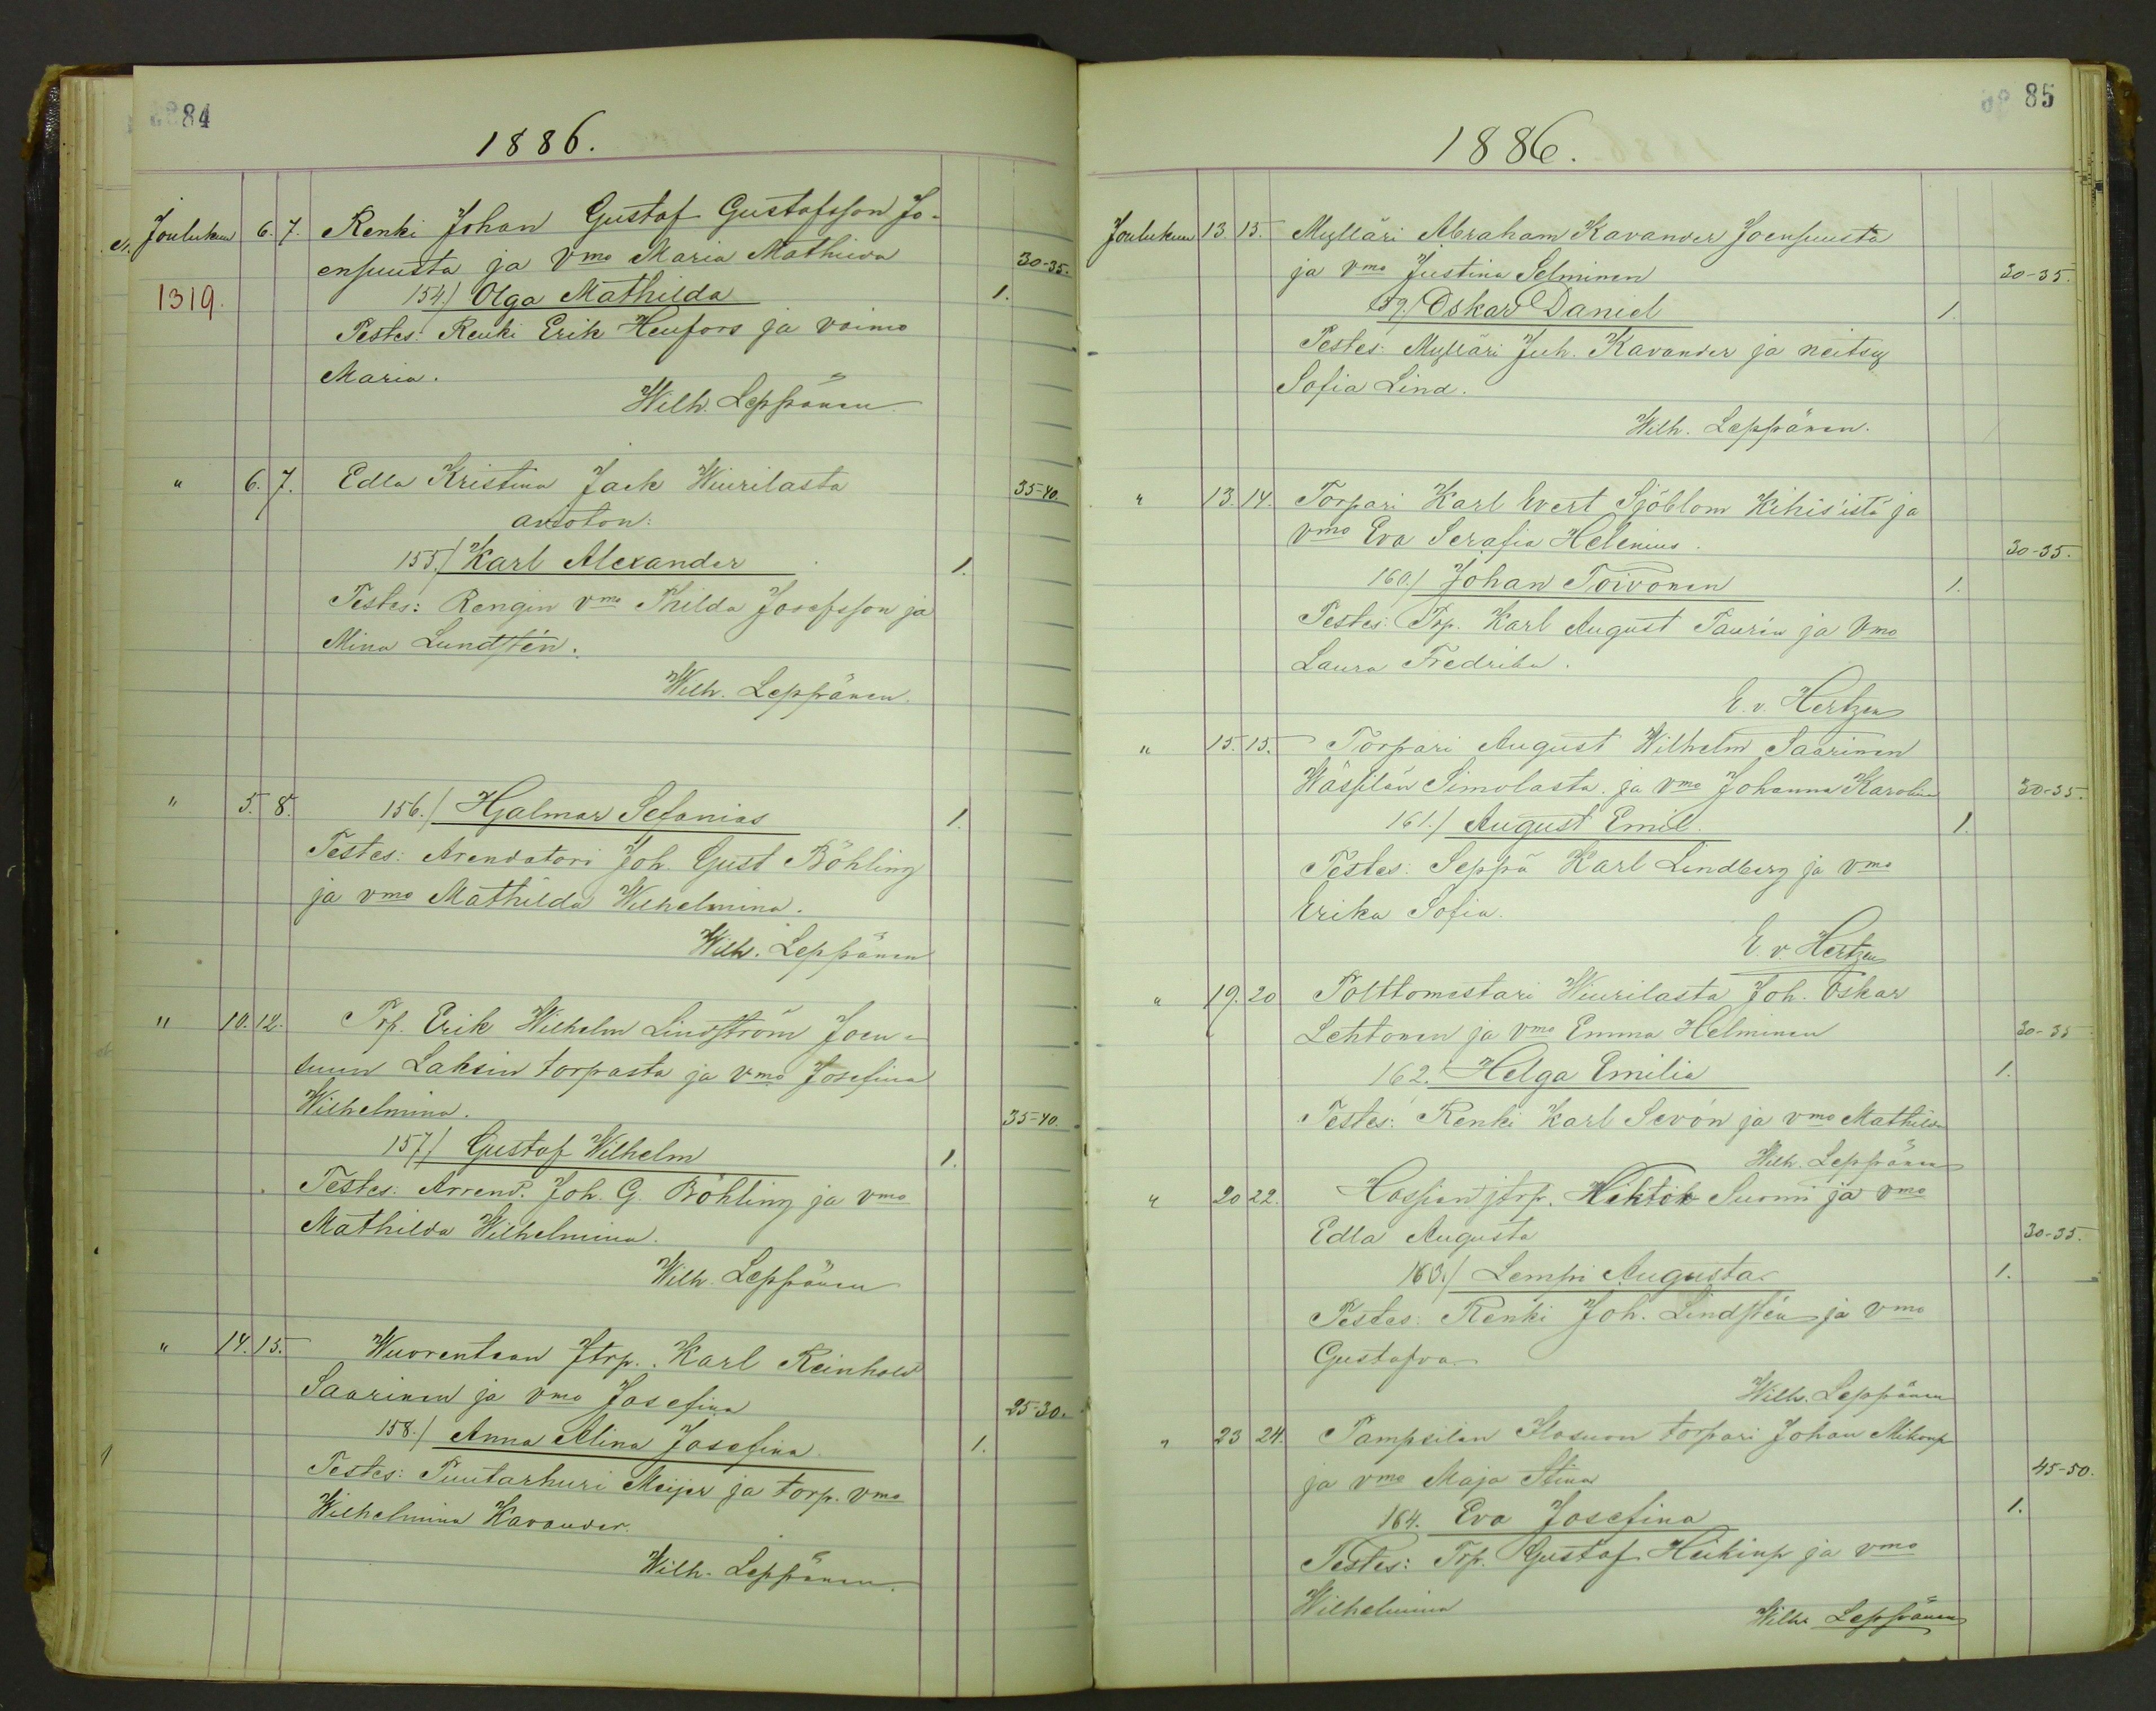 84
1886.
Joulukuu 6. 7. Renki Johan Gustaf Gustafsson Jo-
ensuusta ja vmo Maria Mathilda 30-35.
1319. 154.) Olga Mathilda 1.
Testes: Renki Erik Henfors ja vaimo
Maria.
Wilh. Leppänen
" 6. 7. Edla Kristina Jack Wiurilasta 35-40.
avioton:
155.) Karl Alexander 1.
Testes: Rengin vmo Thilda Josefsson ja
Mina Lundstén.
Wilh. Leppänen.
" 5. 8. 156.) Hjalmar Sefanias 1.
Testes: Arendatori Joh. Gust Böhling
ja vmo Mathilda Wilhelmina.
Wilh. Leppänen
" 10. 12. Trp. Erik Wilhelm Lindström Joen-
suun Laksin torpasta ja vmo Josefina
Wilhelmina. 35-40.
157.) Gustaf Wilhelm 1.
Testes: Arrend. Joh. G. Böhling ja vmo
Mathilda Wilhelmina.
Wilh. Leppänen
" 14. 15. Wuorentaan Jtrp. Karl Reinhold
Saarinen ja vmo Josefina 25-30.
158.) Anna Alina Josefina 1.
Testes: Puutarhuri Meijer ja torp. vmo
Wilhelmina Kavander.
Wilh. Leppänen.
85
1886.
Joulukuu 13. 15. Mylläri Abraham Kavander Joensuusta
ja vmo Justina Selminen 30-35.
159.) Oskar Daniel 1.
Testes: Mylläri Juh. Kavander ja neitsy
Sofia Lind.
Wilh. Leppänen.
" 13. 14. Torpari Karl Evert Sjöblom Kihis'istä ja
vmo Eva Serafia Helenius. 30-35.
160.) Johan Toivonen 1.
Testes: Trp. Karl August Taurin ja vmo
Laura Fredrika.
E. v. Hertzen
" 15. 15. Torpari August Wilhelm Saarinen
Wässilän Simolasta ja vmo Johanna Karolina 30-35.
161.) August Emil. 1.
Testes: Seppä Karl Lindberg ja vmo
Erika Sofia.
E. v. Hertzen
" 19. 20 Polttomestari Wiurilasta Joh. Oskar
Lehtonen ja vmo Emma Helminen 30-35
162. Helga Emilia 1.
Testes: Renki Karl Sevón ja vmo Mathilda
Wilh. Leppänen
" 20 22. jtrp. Wiktor Suomi ja vmo
Edla Augusta 30-35.
163.) Lempi Augusta 1.
Testes: Renki Joh. Lindstén ja vmo
Gustafva
Wilh. Leppänen
" 23 24. Pampsilan torpari Johan
ja vmo Maja Stina 45-50.
164. Eva Josefina 1.
Testes: Trp. Gustaf ja vmo
Wilhelmina
Wilh. Leppänen